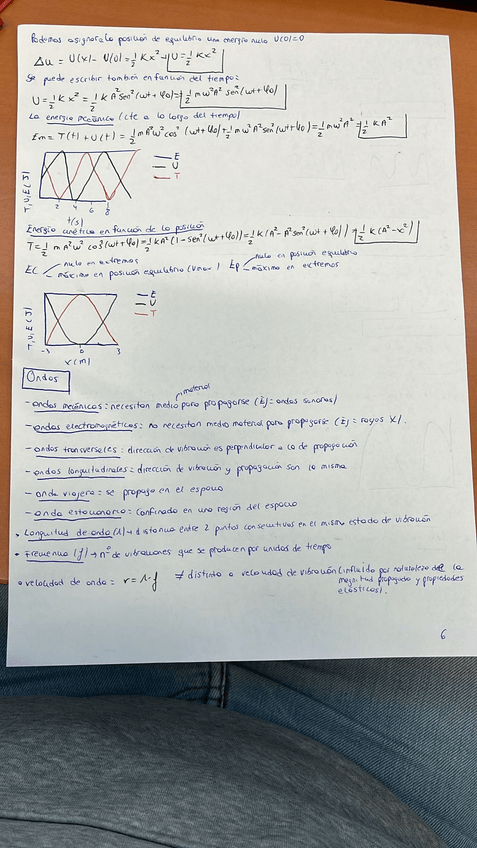 Podemos asignar a la posición de equilibrio una energía nula U(0)=0
Δu = U(x) - U(0) = 1/2 K x² → U = 1/2 K x²
Se puede escribir también en función del tiempo:
U = 1/2 K x² = 1/2 K A² sen² (wt + φ0) = 1/2 m w² A² sen² (wt + φ0)
La energía mecánica (cte a lo largo del tiempo)
Em = T(t) + U(t) = 1/2 m A² w² cos² (wt + φ0) + 1/2 m w² A² sen² (wt + φ0) = 1/2 m w² A² = 1/2 K A²
T, U, E (J)
E
U
T
2 4 6 8
t(s)
Energía cinética en función de la posición
T = 1/2 m A² w² cos² (wt + φ0) = 1/2 k A² (1 - sen² (wt + φ0)) = 1/2 k (A² - A² sen² (wt + φ0)) = 1/2 k (A² - x²)
EC nula en extremos
máxima en posición equilibrio (vmax)
Ep nula en posición equilibrio
máxima en extremos
T, U, E (J)
E
U
T
-3 0 3
x (m)
Ondas
- ondas mecánicas: necesitan medio material para propagarse (Ej = ondas sonoras)
- ondas electromagnéticas: no necesitan medio material para propagarse (Ej = rayos X).
- ondas transversales: dirección de vibración es perpendicular a la de propagación
- ondas longitudinales: dirección de vibración y propagación son la misma
- onda viajera: se propaga en el espacio
- onda estacionaria: confinada en una región del espacio
• Longitud de onda (λ) → distancia entre 2 puntos consecutivos en el mismo estado de vibración
• Frecuencia (f) → nº de vibraciones que se producen por unidad de tiempo
• velocidad de onda = v = λ·f ≠ distinto a velocidad de vibración (influida por naturaleza de la
magnitud propagada y propiedades
elásticas).
6